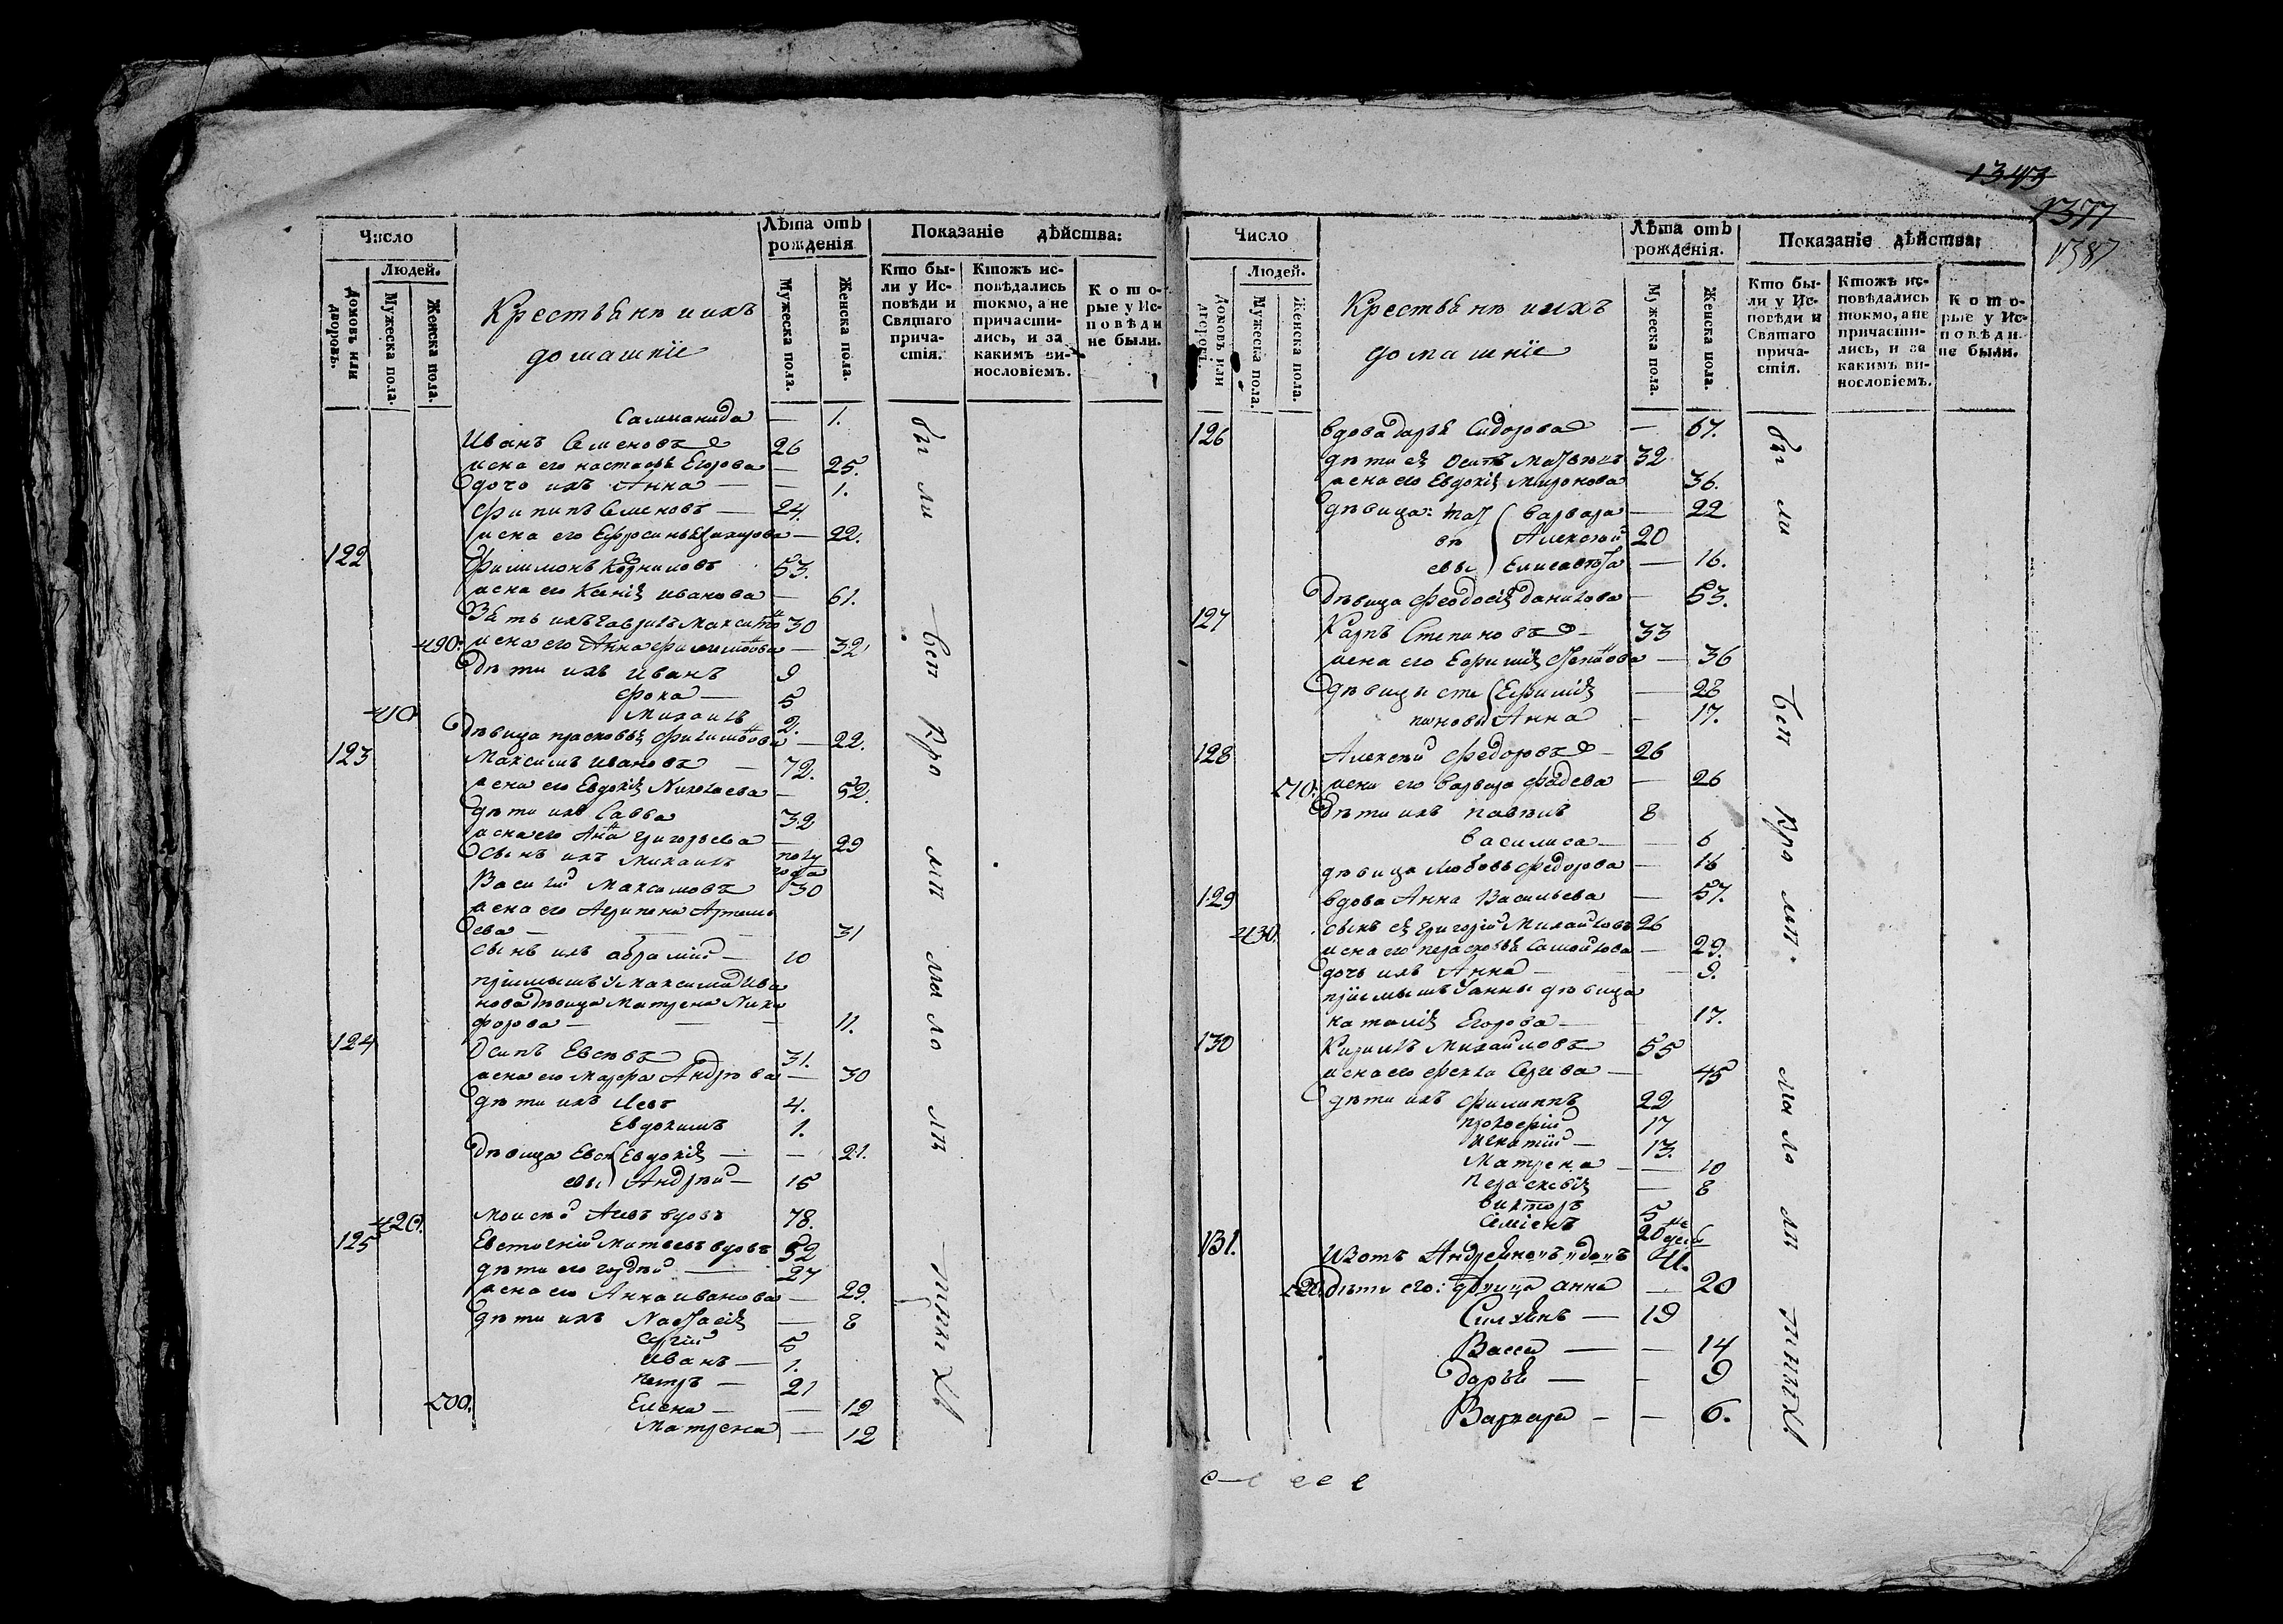 1343
1377
1387
Число
Лѣта отъ рожденія
Показаніе дѣйства:
Людей.
Домовъ или дворовъ.
Мужеска пола.
Женска пола.
Крестьяне и ихъ
домашніе
Мужеска пола.
Женска пола.
Кто бы-
ли у Ис-
повѣди и
Святаго
прича-
стія.
Ктожъ ис-
повѣдались
токмо, а не
причасти-
лись, и за
какимъ ви-
нословіемъ.
Кото-
рые у Ис-
повѣди
не были.
— 1.
Иванъ Семеновъ 26
жена его настасья Егорова — 25.
дочь ихъ Анна — — 1.
Филипъ Семеновъ — 24.
жена его Ефросинья — 22.
122 Филимонъ Корниловъ 53.
жена его Ксенія иванова — 61.
Зять ихъ Гаврилъ 30
490. жена его Анна — 32
Дѣти ихъ иванъ 9
фока — 5
410 Михаилъ 2.
Дѣвица прасковья — 22.
123 Максимъ ивановъ — 72.
жена его Евдокія Николаева — 52.
дѣти ихъ Савва 32
жена его Анна григорьева — 29
сынъ ихъ Михаилъ полугода
Василій Максимовъ 30
жена его Агрипена Артемь
ева — — — 31
сынъ ихъ абрамій — 10
пріемышъ У Максима Ива
нова дѣвица Матрена Ники
форова — — — 11.
124 Осипъ Евсѣвъ 31.
жена его Марфа Андрѣва — 30
дѣти ихъ Левъ 4.
Евдокимъ 1.
Дѣвица Евсѣ Евдокія — — 21.
евы Андрѣй — 15
420. Моисѣй вдовъ 78.
125 Евстегній Матвеевъ вдовъ 52
дѣти его гордѣй — 27
жена его Анна иванова — 29.
дѣти ихъ Настасія — 8
Сергій 5
иванъ — 1.
петръ — 21
500. Елена — — 12
Матрена — 12
бы ли
всп Кро мп
мы ло лп
тпннхъ
Число
Лѣта отъ рожденія.
Показаніе дѣйства:
Людей.
Домовъ или дворовъ.
Мужеска пола.
Женска пола.
Крестьяне и ихъ
домашніе
Мужеска пола.
Женска пола.
Кто бы-
ли у Ис-
повѣди и
Святаго
прича-
стія.
Ктожъ ис-
повѣдались
токмо, а не
причасти-
лись, и за
какимъ ви-
нословіемъ.
Кото-
рые у Ис-
повѣди
не были.
126 вдова дарья Сидорова — 67.
дѣти ея осипъ Матвѣевъ 32
жена его Евдокія Миронова 36.
дѣвица: мат варвара — 22
вѣ Алексѣй 20
евы Елисавета — 16.
Дѣвица Феодосія Данилова — 53.
127 Карпъ Степановъ — 33
жена его Ефимія — 36
дѣвицы сте Ефимія — 28
пановы Анна — 17.
128 Алексѣй Федоровъ — 26
510. жена его варвара Фадева — 26
Дѣти ихъ павелъ 8
василиса — — 6
дѣвица любовь Федорова — 16
129 вдова Анна Васильева — 57.
430. сынъ ея григорій Михайловъ 26
жена его прасковья Самойлова — 29.
дочь ихъ Анна — — 9.
пріемышъ У анны дѣвица
наталія Егорова — 17.
130 Кирилъ Михайловъ 55
жена его фекла Сергева — 45
дѣти ихъ филиппъ 22
прокофій 17
игнатій — 13.
Матрена — — 10
параскевія — 8
викторъ 5
Симіонъ 20
131. Изотъ Андреяновъ вдовъ
520. Дѣти его: дѣвица анна — 20
Силуянъ — 19
Васса — — 14
Дарья — — 9
Варвара — — 6.
бы ли
всп Кро мп
мы ло лп
тпннхъ